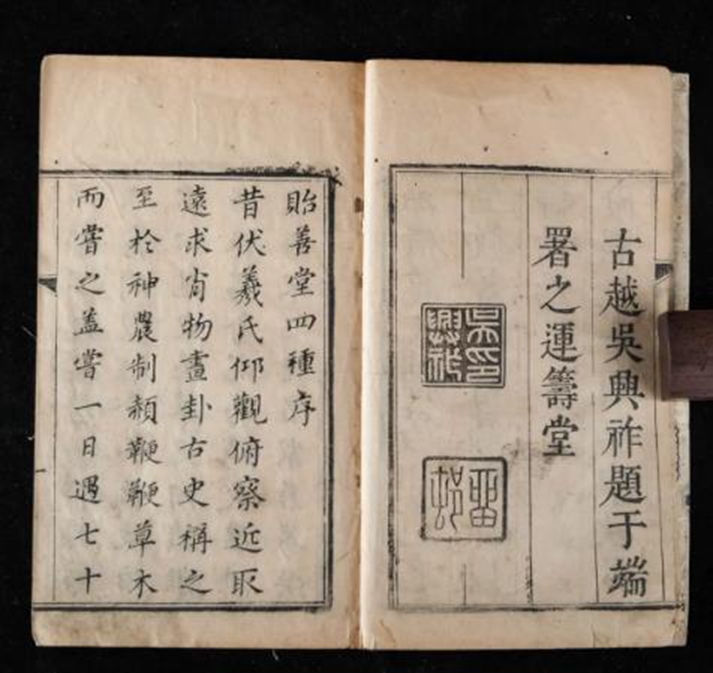 古越吳興祚題于端
署之運籌堂
吳興祚印
留邨
貽善堂四種序
昔伏羲氏仰觀俯察近取
遠求肖物畫卦古史稱之
至於神農制赭鞭鞭草木
而嘗之蓋嘗一日遇七十